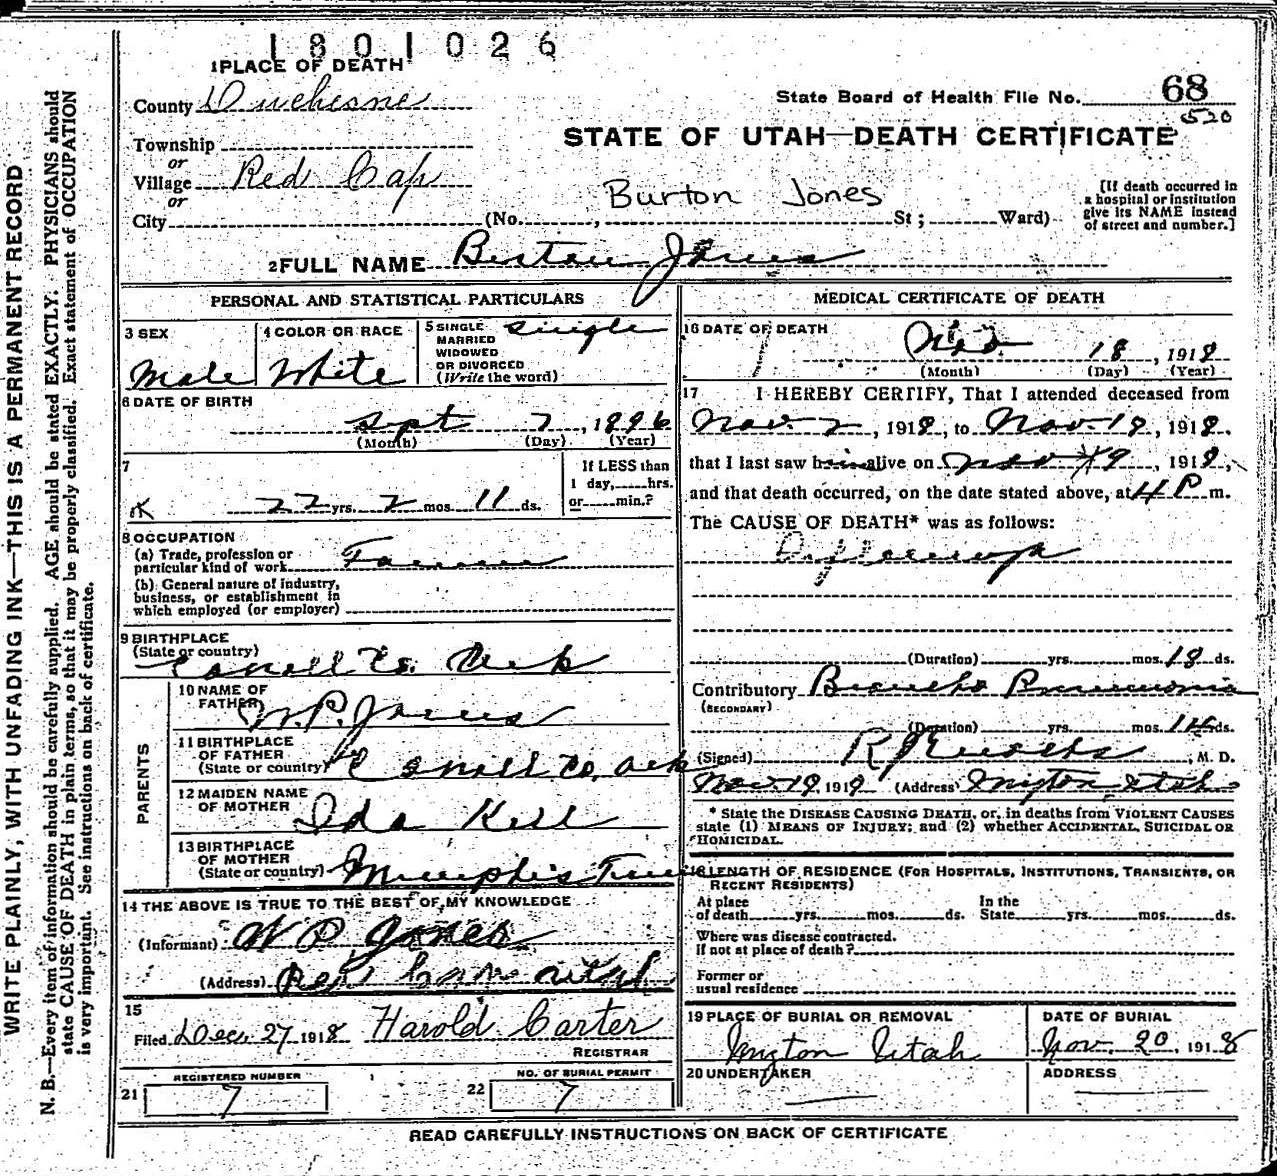 1801026
1 PLACE OF DEATH
County Duchesne
State Board of Health File No. 68
520
STATE OF UTAH—DEATH CERTIFICATE
Township
or
Village Red Cap
or
City (No. , St ; Ward)
Burton Jones
[If death occurred in
a hospital or institution
give its NAME instead
of street and number.]
2 FULL NAME Burton Jones
PERSONAL AND STATISTICAL PARTICULARS
3 SEX
Male
4 COLOR OR RACE
White
5 SINGLE
MARRIED
WIDOWED
OR DIVORCED
(Write the word)
single
6 DATE OF BIRTH
Sept 7, 1896
(Month) (Day) (Year)
7
22 yrs. 2 mos. 11 ds.
If LESS than
1 day, hrs.
or min.?
8 OCCUPATION
(a) Trade, profession or
particular kind of work Farmer
(b) General nature of industry,
business, or establishment in
which employed (or employer)
9 BIRTHPLACE
(State or country)
Carroll Co. Ark
PARENTS
10 NAME OF
FATHER W. P. Jones
11 BIRTHPLACE
OF FATHER
(State or country) Carroll Co. Ark
12 MAIDEN NAME
OF MOTHER Ida Kell
13 BIRTHPLACE
OF MOTHER
(State or country) Memphis Tenn
14 THE ABOVE IS TRUE TO THE BEST OF MY KNOWLEDGE
(Informant) W P Jones
(Address) Red Cap Utah
15
Filed Dec. 27 1918 Harold Carter
REGISTRAR
REGISTERED NUMBER
21 7
NO. OF BURIAL PERMIT
22 7
MEDICAL CERTIFICATE OF DEATH
16 DATE OF DEATH
Nov. 18, 1918
(Month) (Day) (Year)
17 I HEREBY CERTIFY, That I attended deceased from
Nov. 2, 1918, to Nov 18, 1918,
that I last saw him alive on Nov 9, 1918,
and that death occurred, on the date stated above, at 4 P m.
The CAUSE OF DEATH* was as follows:
Influenza
(Duration) yrs. mos. 18 ds.
Contributory Broncho Pneumonia
(SECONDARY)
(Duration) yrs. mos. 14 ds.
(Signed) M. D.
Nov. 19, 1919 (Address) Myton, Utah
* State the DISEASE CAUSING DEATH, or, in deaths from VIOLENT CAUSES
state (1) MEANS OF INJURY; and (2) whether ACCIDENTAL, SUICIDAL OR
HOMICIDAL.
18 LENGTH OF RESIDENCE (FOR HOSPITALS, INSTITUTIONS, TRANSIENTS, OR
RECENT RESIDENTS)
At place
of death yrs. mos. ds.
In the
State yrs. mos. ds.
Where was disease contracted.
if not at place of death?
Former or
usual residence
19 PLACE OF BURIAL OR REMOVAL
Myton Utah
DATE OF BURIAL
Nov. 20, 1918
20 UNDERTAKER
ADDRESS
READ CAREFULLY INSTRUCTIONS ON BACK OF CERTIFICATE
WRITE PLAINLY, WITH UNFADING INK—THIS IS A PERMANENT RECORD
N. B.—Every item of information should be carefully supplied. AGE should be stated EXACTLY. PHYSICIANS should
state CAUSE OF DEATH in plain terms, so that it may be properly classified. Exact statement of OCCUPATION
is very important. See instructions on back of certificate.